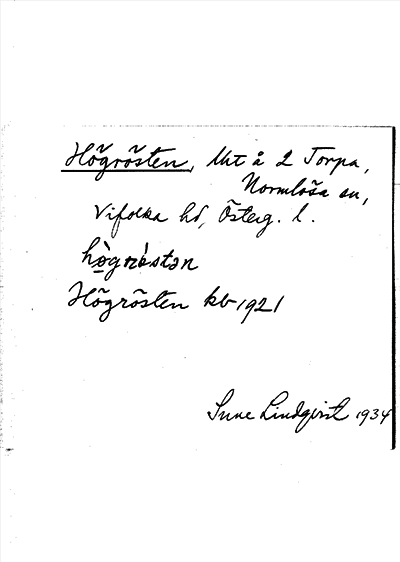 Högrösten, Utt å 2 Torpa,
Normlösa sn,
Vifolka hd, Österg. l.
hò̱gnö́stən
Högrösten kb 1921
Sune Lindqvist 1934